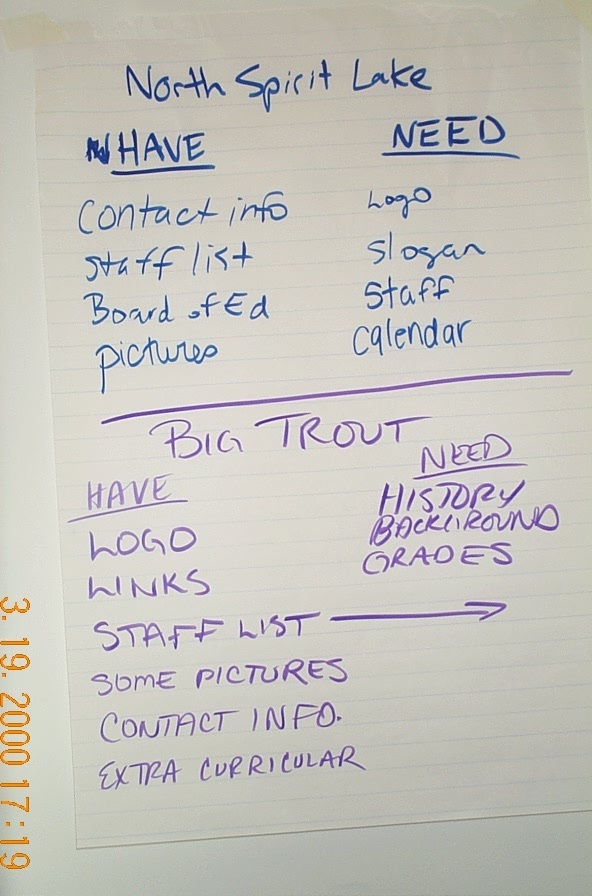 North Spirit Lake
HAVE NEED
Contact info Logo
staff list slogan
Board of Ed Staff
pictures calendar
BIG TROUT
HAVE NEED
LOGO HISTORY
LINKS BACKGROUND
STAFF LIST GRADES
SOME PICTURES
CONTACT INFO.
EXTRA CURRICULAR
3. 19. 2000 17:19